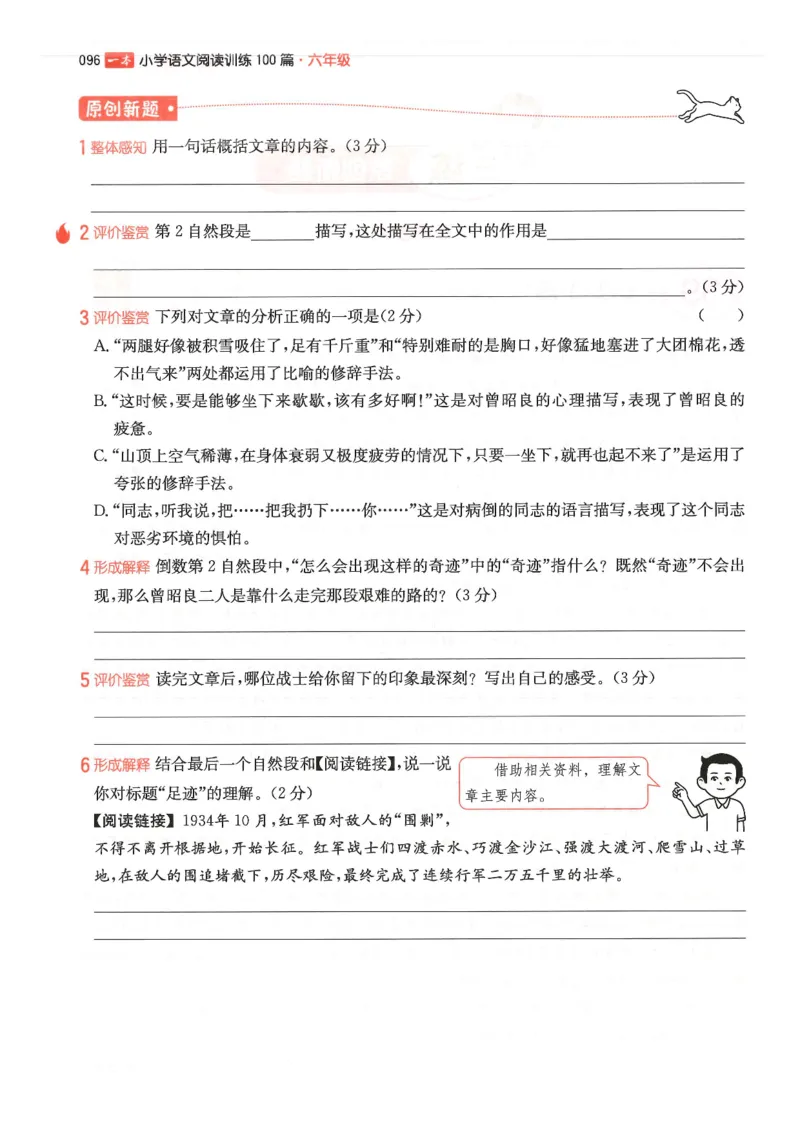 096 一本 小学语文阅读训练100篇·六年级
原创新题
1 整体感知 用一句话概括文章的内容。(3分)
2 评价鉴赏 第2自然段是________描写,这处描写在全文中的作用是________
。(3分)
3 评价鉴赏 下列对文章的分析正确的一项是(2分) ( )
A.“两腿好像被积雪吸住了,足有千斤重”和“特别难耐的是胸口,好像猛地塞进了大团棉花,透
不出气来”两处都运用了比喻的修辞手法。
B.“这时候,要是能够坐下来歇歇,该有多好啊!”这是对曾昭良的心理描写,表现了曾昭良的
疲惫。
C.“山顶上空气稀薄,在身体衰弱又极度疲劳的情况下,只要一坐下,就再也起不来了”是运用了
夸张的修辞手法。
D.“同志,听我说,把……把我扔下……你……”这是对病倒的同志的语言描写,表现了这个同志
对恶劣环境的惧怕。
4 形成解释 倒数第2自然段中,“怎么会出现这样的奇迹”中的“奇迹”指什么?既然“奇迹”不会出
现,那么曾昭良二人是靠什么走完那段艰难的路的?(3分)
5 评价鉴赏 读完文章后,哪位战士给你留下的印象最深刻?写出自己的感受。(3分)
6 形成解释 结合最后一个自然段和【阅读链接】,说一说
你对标题“足迹”的理解。(2分)
借助相关资料,理解文
章主要内容。
【阅读链接】1934年10月,红军面对敌人的“围剿”,
不得不离开根据地,开始长征。红军战士们四渡赤水、巧渡金沙江、强渡大渡河、爬雪山、过草
地,在敌人的围追堵截下,历尽艰险,最终完成了连续行军二万五千里的壮举。